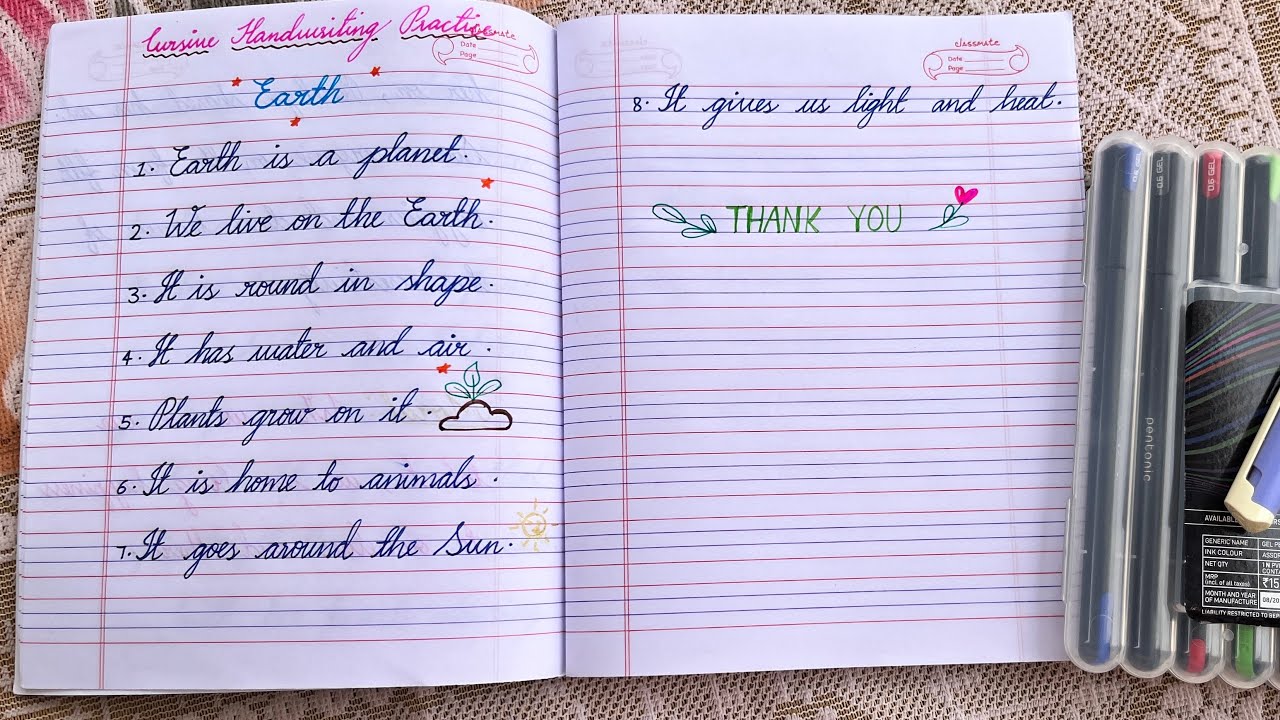 Cursive Handwriting Practice
classmate
Date
Page
Earth
1. Earth is a planet.
2. We live on the Earth.
3. It is round in shape.
4. It has water and air.
5. Plants grow on it.
6. It is home to animals.
7. It goes around the Sun.
classmate
Date
Page
8. It gives us light and heat.
THANK YOU
0.6 GEL
0.6 GEL
0.6 GEL
pentonic
AVAILABLE
GENERIC NAME GEL
INK COLOUR
NET QTY 1 N
MRP
(incl. of all taxes) ₹15
MONTH AND YEAR
OF MANUFACTURE 08/20
LIABILITY RESTRICTED TO